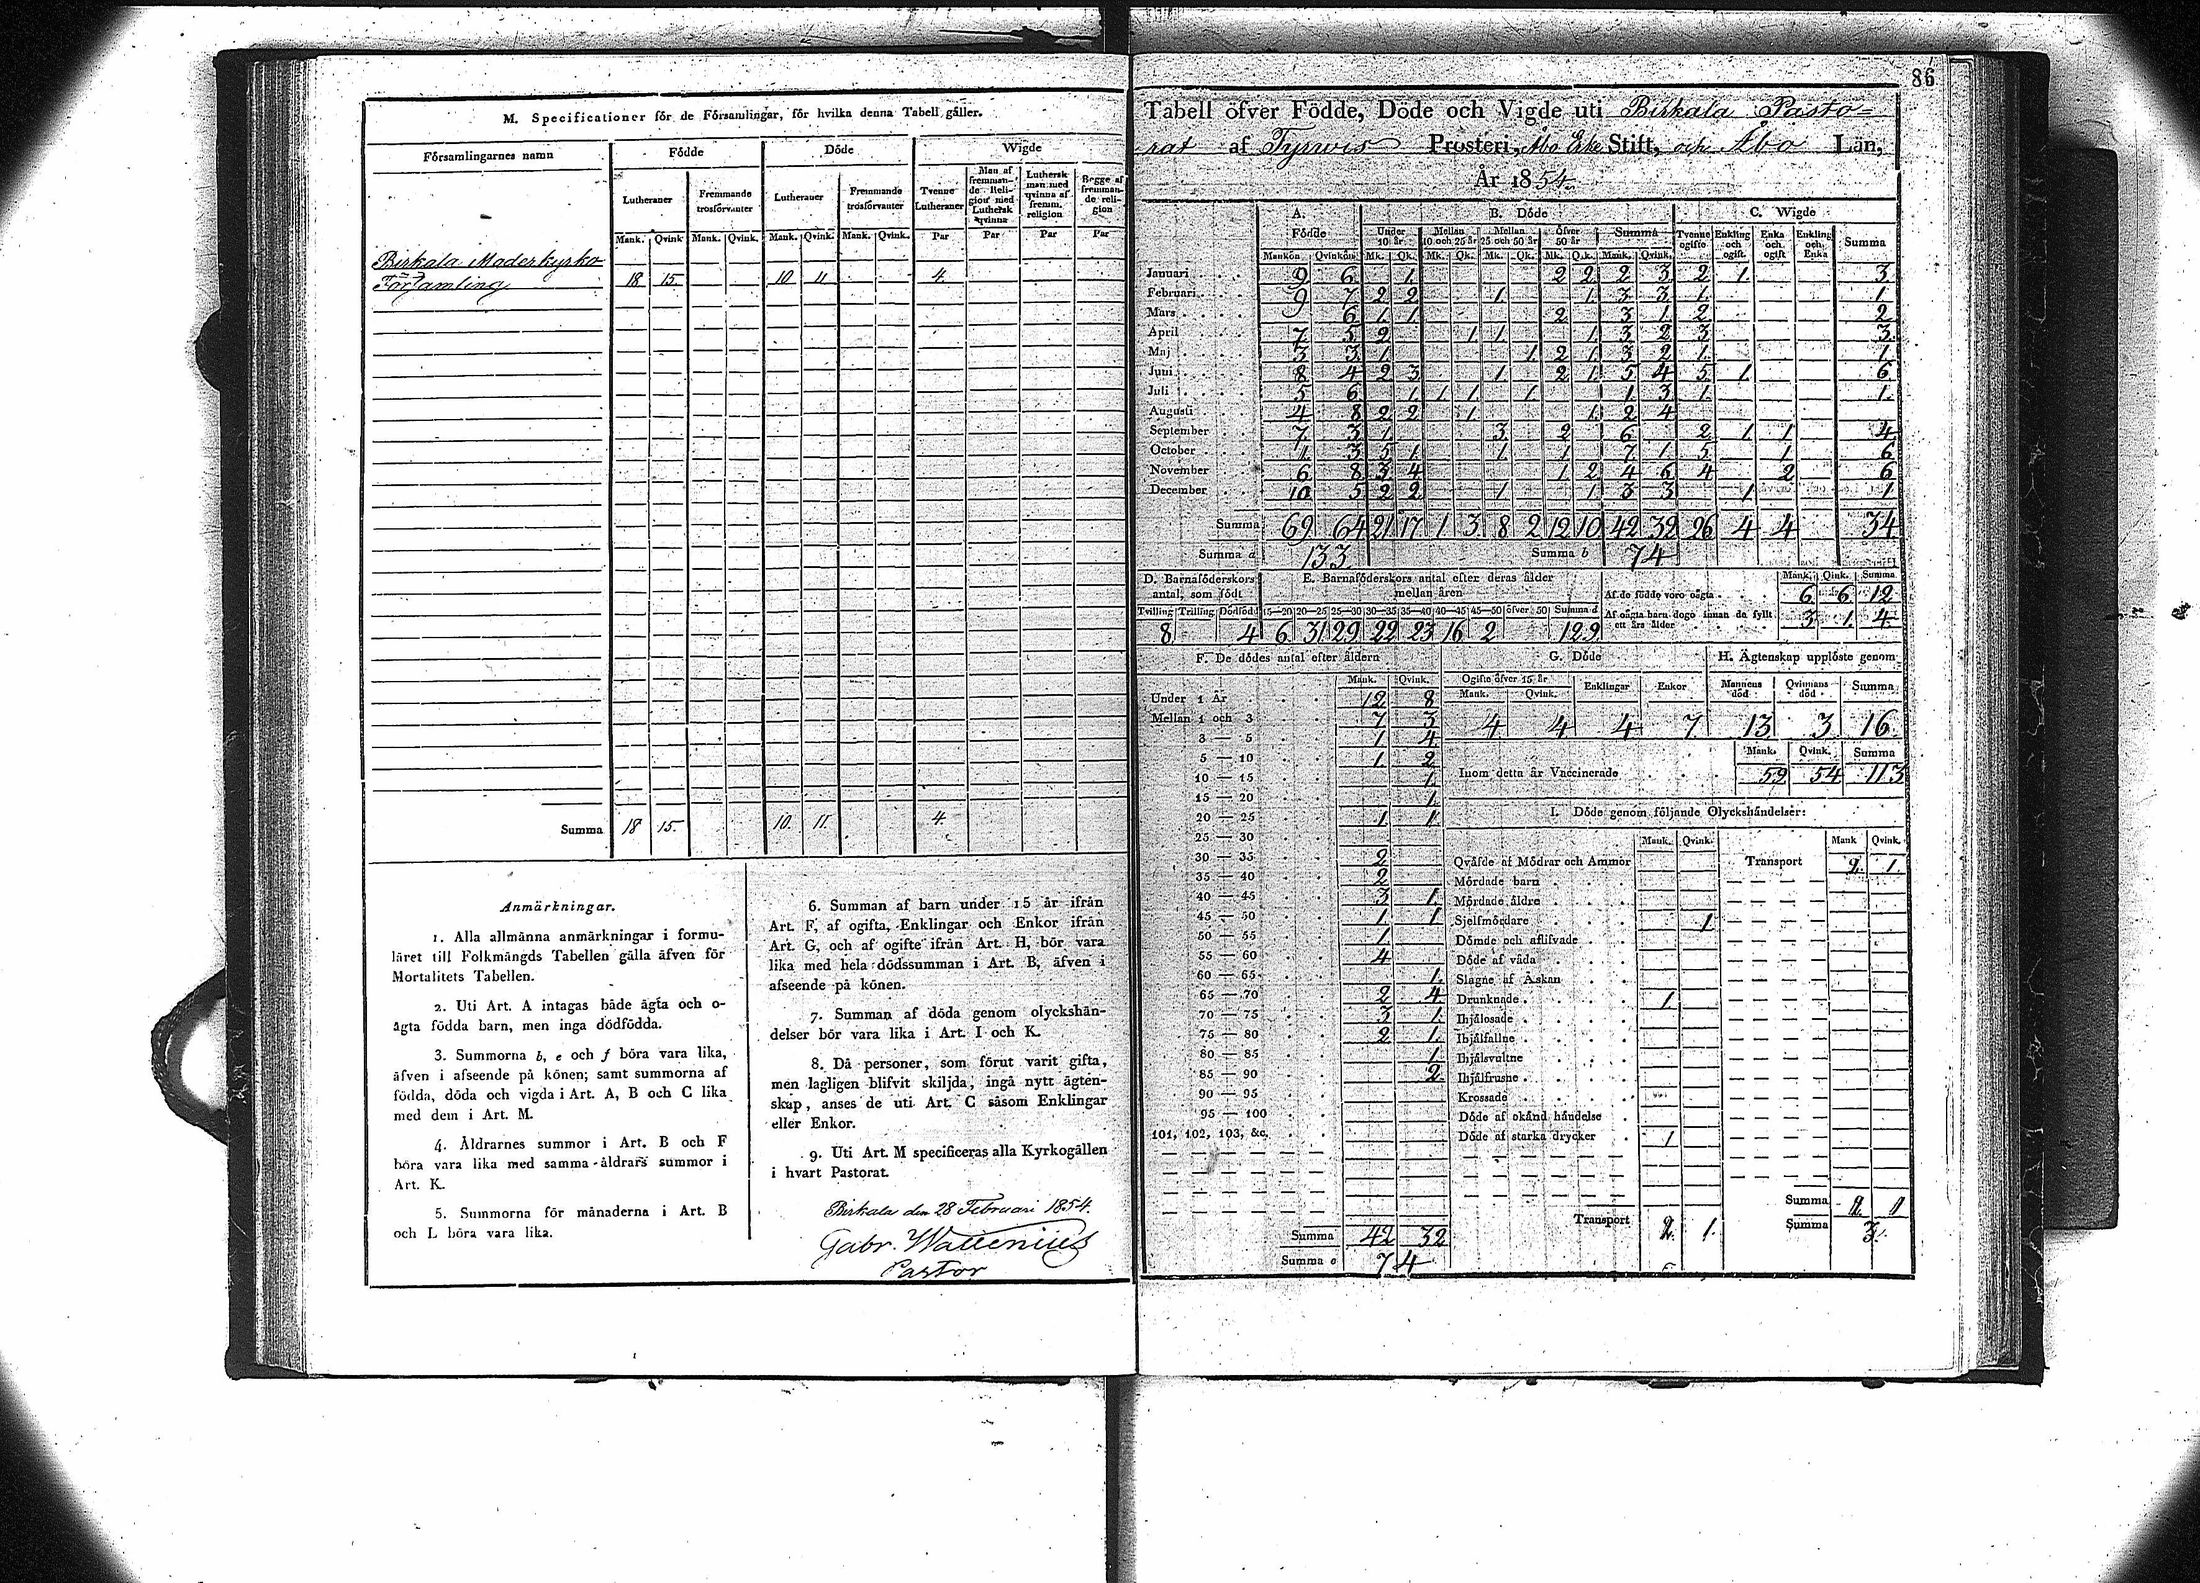 M. Specificationer för de Församlingar, för hvilka denna Tabell gäller.
Församlingarnes namn Födde Döde Wigde
Lutheraner Fremmande trosförvanter Lutheraner Fremmande trosförvanter Tvenne Lutheraner Man af fremmande Religion med Luthersk qvinna Luthersk man med qvinna af fremm. religion Begge af fremmande religion
Mank. Qvink Mank. Qvink. Mank. Qvink. Mank. Qvink. Par Par Par Par
Birkala Moderkyrko
Församling 18 15. 10 11 4.
Summa 18 15. 10. 11. 4.
Anmärkningar.
1. Alla allmänna anmärkningar i formu-
läret till Folkmängds Tabellen gälla äfven för
Mortalitets Tabellen.
2. Uti Art. A intagas både ägta och o-
ägta födda barn, men inga dödfödda.
3. Summorna b, e och f böra vara lika,
äfven i afseende på könen; samt summorna af
födda, döda och vigda i Art. A, B och C lika
med dem i Art. M.
4. Åldrarnes summor i Art. B och F
böra vara lika med samma åldrars summor i
Art. K.
5. Summorna för månaderna i Art. B
och L böra vara lika.
6. Summan af barn under 15 år ifrån
Art. F, af ogifta, Enklingar och Enkor ifrån
Art. G, och af ogifte ifrån Art. H, bör vara
lika med hela dödssumman i Art. B, äfven i
afseende på könen.
7. Summan af döda genom olyckshän-
delser bör vara lika i Art. I och K.
8. Då personer, som förut varit gifta,
men lagligen blifvit skiljda, ingå nytt ägten-
skap, anses de uti Art. C såsom Enklingar
eller Enkor.
9. Uti Art. M specificeras alla Kyrkogällen
i hvart Pastorat.
Birkala den 28 Februari 1854.
Gabr. Wallenius
Pastor
86
Tabell öfver Födde, Döde och Vigde uti Birkala Pasto-
rat af Tyrwis Prosteri, Åbo Erke Stift, och Åbo Län,
År 1854.
A. B. Döde C. Wigde
Födde Under 10 år Mellan 10 och 25 år Mellan 25 och 50 år Öfver 50 år Summa Tvenne ogifte Enkling och ogift Enka och ogift Enkling och Enka Summa
Mankön Qvinkön Mk. Qk. Mk. Qk. Mk. Qk. Mk. Qk. Mank. Qvink.
Januari 9 6 1. 2 2 2 3 2 1. 3
Februari 9 7 2 2 1. 1. 3 3 1. 1.
Mars 6 1. 1 2 3 1. 2 2
April 7. 5 2 1. 1. 1. 3 2 3 3.
Maj 3 3 1. 1. 2 1. 3 2 1. 1.
Juni 8 4 2 3 1. 2 1. 5 4 5 1. 6
Juli 5 6 1. 1 1. 1 1 3 1. 1.
Augusti 4 8 2 2 1. 1. 2 4
September 7. 3 1. 3. 2 6 2 1. 1 4
October 1. 3 5 1. 1. 1 7 1. 5 1. 6
November 6 8 3 4 1. 2 4 6 4 2 6
December 10 5 2 2 1. 1. 3 3 1. 1.
Summa 69 64 21 17 1 3 8 2 12 10 42 32 26 4 4 34
Summa a 133 Summa b 74
D. Barnaföderskors antal, som födt E. Barnaföderskors antal efter deras ålder mellan åren Mank. Qink. Summa
Af de födde voro oägta 6 6 12
Tvilling Trilling Dödföd. 15—20 20—25 25—30 30—35 35—40 40—45 45—50 öfver 50 Summa d Af oägta barn dogo innan de fyllt ett års ålder 3 1. 4
8 4 6. 31 29 22 23 16 2 129.
F. De dödes antal efter åldern G. Döde H. Ägtenskap upplöste genom
Mank. Qvink. Ogifte öfver 15 år Mank. Qvink. Enklingar Enkor Mannens död Qvinnans död Summa
4 4 4 7 13 3 16.
Under 1 År 12 8
Mellan 1 och 3 7 3
3 — 5 1. 4
5 — 10 1. 2
10 — 15 1.
15 — 20 1.
20 — 25 1 1
25 — 30
30 — 35 2
35 — 40 2
40 — 45 3 1.
45 — 50 1. 1
50 — 55 1.
55 — 60 4
60 — 65 1.
65 — 70 2 4
70 — 75 3 1.
75 — 80 2 1.
80 — 85 1.
85 — 90 2.
90 — 95
95 — 100
101, 102, 103, &c.
Summa 42 32
Summa e 74
Mank. Qvink. Summa
Inom detta år Vaccinerade 59. 54 113
I. Döde genom följande Olyckshändelser:
Mank. Qvink. Mank Qvink.
Qväfde af Mödrar och Ammor Transport 2. 1.
Mördade barn
Mördade äldre
Sjelfmördare 1
Dömde och aflifvade
Döde af våda
Slagne af Åskan
Drunknade 1.
Ihjälosade
Ihjälfallne
Ihjälsvultne
Ihjälfrusne
Krossade
Döde af okänd händelse
Döde af starka drycker 1
Summa 2. 1
Transport 2. 1. Summa 3.